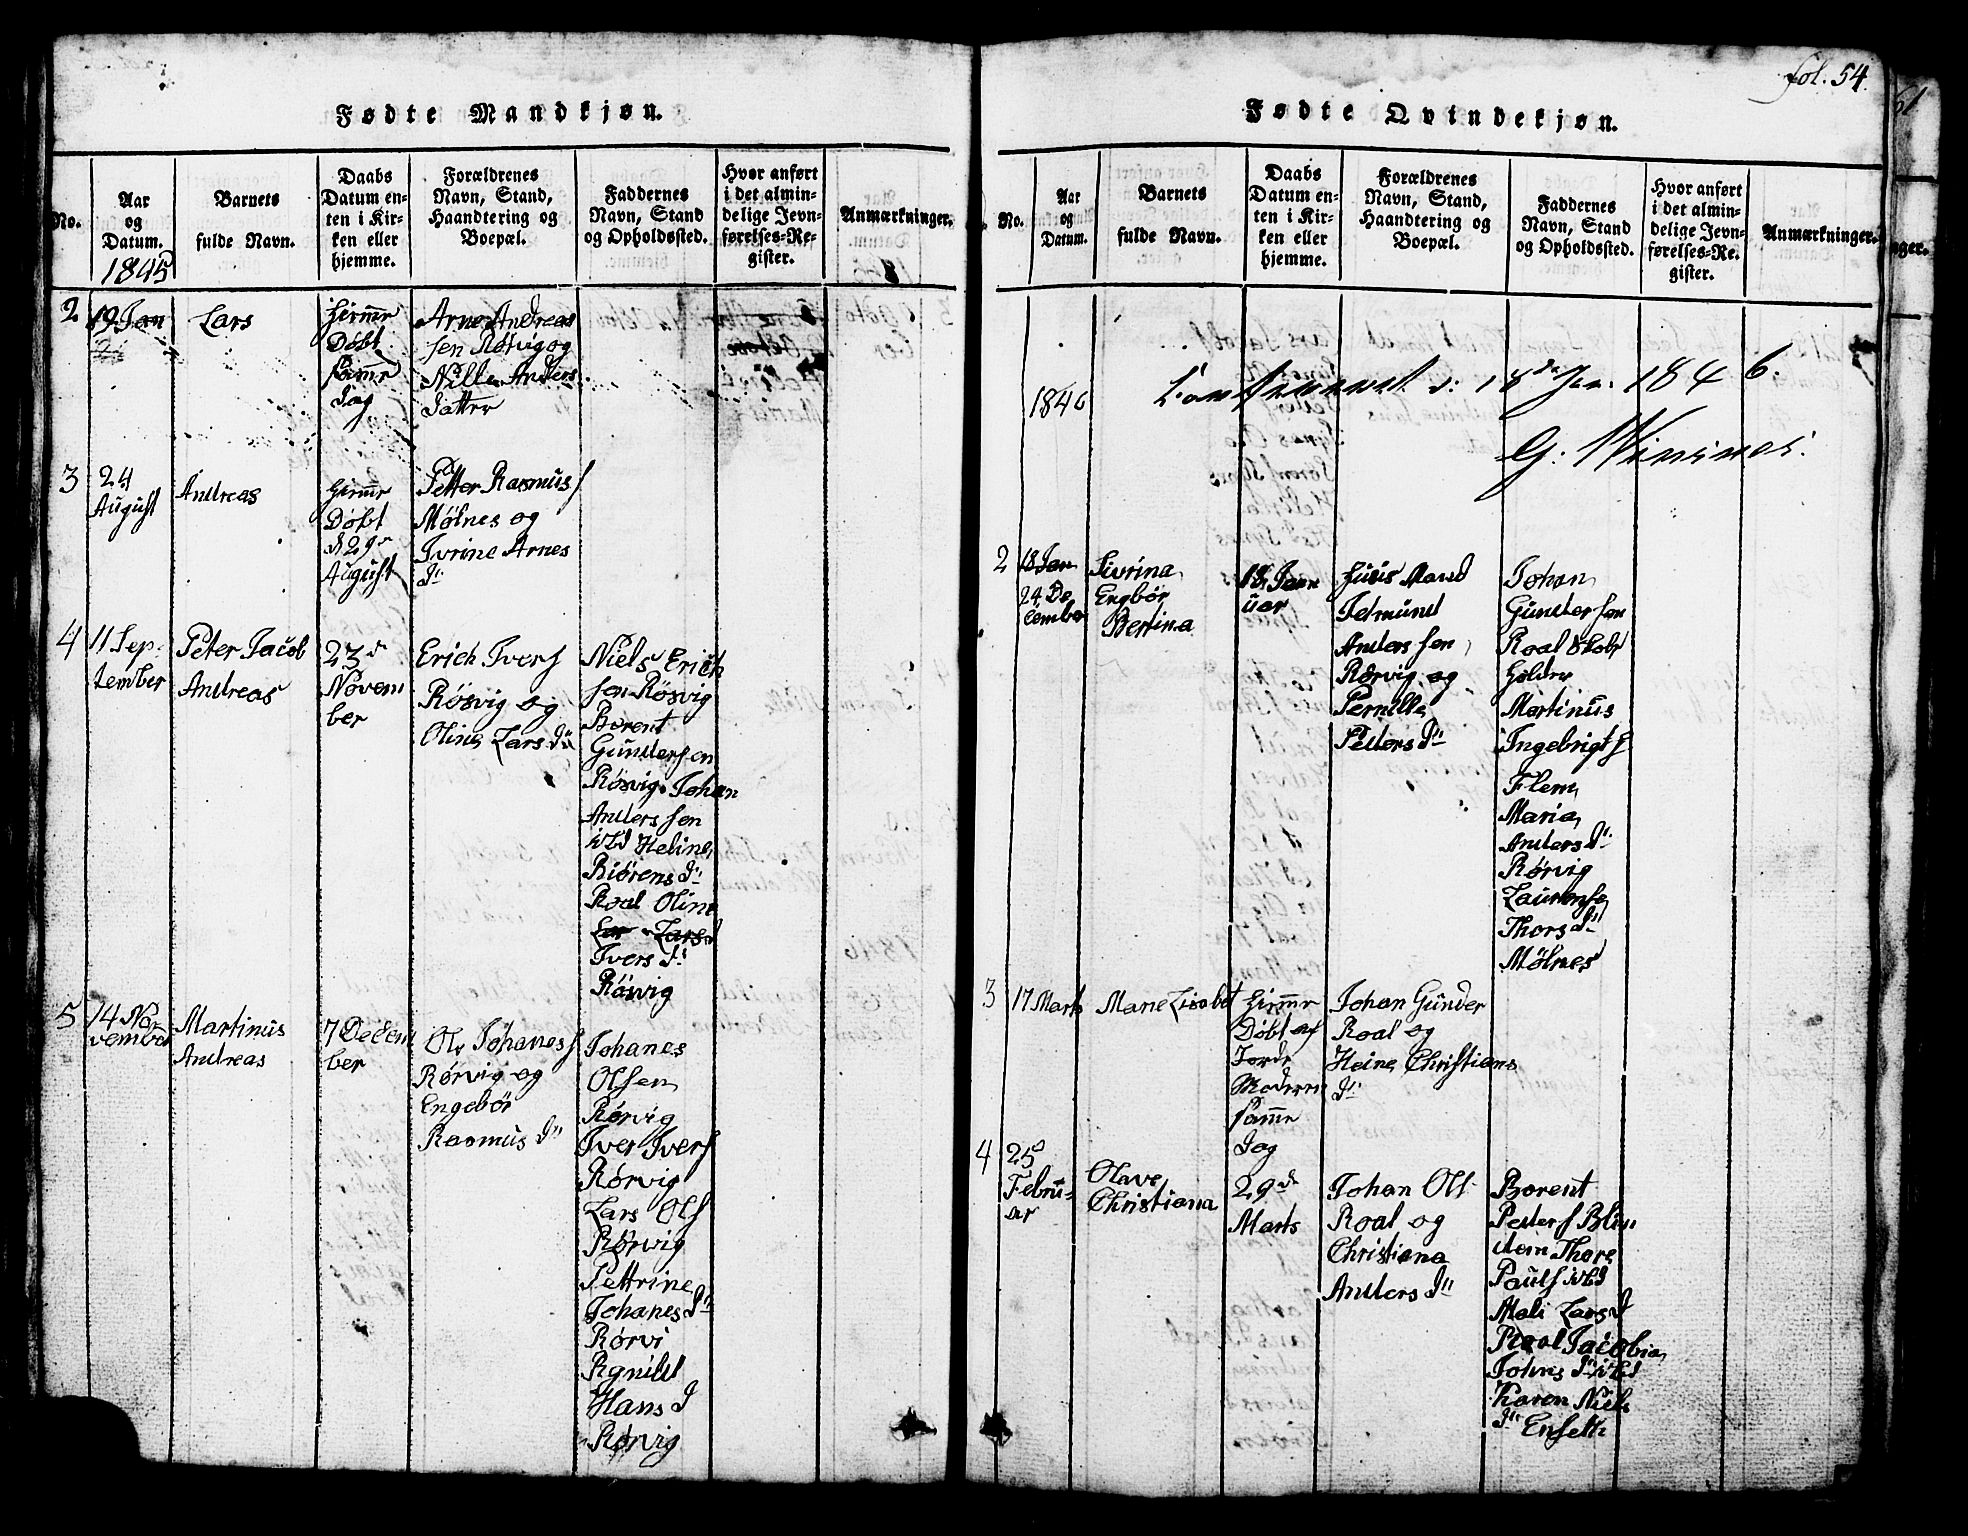 fol. 54.
61
Fødte Mandkjøn.
No.
Aar
og
Datum.
1845
Barnets
fulde Navn.
Daabs
Datum en-
ten i Kir-
ken eller
hjemme.
Forældrenes
Navn, Stand,
Haandtering og
Boepæl.
Faddernes
Navn, Stand
og Opholdssted.
Hvor anført
i det almin-
delige Jevn-
førelses-Re-
gister.
Anmærkninger.
2
19 Jan
Lars
Døbt
samme
Dag
Arne Andreas
sen Rørvig og
Nille Anders
Datter
3
24
August
Andreas
Døbt
d 29de
August
Petter Rasmus
Mølnes og
Ivrine Arnes
Dtr
4
11 Sep-
tember
Peter Jacob
Andreas
23de
Novem
ber
Erich Ivers
Rösvig og
Oline Lars Dtr
Niels Erich
sen Rösvig
Borent
Gundersen
Rösvig Johan
Anders sen
ibd Heline
Biörens Dtr
Roal Oline
Lars
Ivers D
Rösvig
5
14 No-
vember
Martinus
Andreas
7 Decem
ber
Ole Johanes
Rørvig og
Engebör
Rasmus Dtr
Johanes
Olsen
Rørvig
Iver Ivers
Rørvig
Lars Ols
Rørvig
Pettrine
Johanes Dtr
Rørvi
Hans D
Rørvig
Fødte Qvindekjøn.
No.
Aar
og
Datum.
Barnets
fulde Navn.
Daabs
Datum en-
ten i Kir-
ken eller
hjemme.
Forældrenes
Navn, Stand,
Haandtering og
Boepæl.
Faddernes
Navn, Stand
og Opholdssted.
Hvor anført
i det almin-
delige Jevn-
førelses-Re-
gister.
Anmærkninger.
1846
d: 18de Jan: 1846.
2
18 Jan
24 De
cember
Sivrina
Engbör
Bertina
18 Jan
uar
Huus Mand
Anders sen
Rørvig og
Pernille
Petters Dtr
Johan
Gunder sen
Roal
Martinus
Ingebrigts
Flem
Maria
Anders Dtr
Rørvig
Thors Dtr
Mølnes
3
17 Marts
Marie Lisabet
Døbt af
Jorde
Moderen
samme
Dag
Johan Gunder
Roal og
Heine Christians
Dtr
4
25
Febru-
ar
Olave
Christiana
29de
Marts
Johan Ols
Roal og
Christiana
Anders Dtr
Borent
Peders Blin
dem Thore
Pauls ibd
Mali Lars D
Roal Jacobia
Johns D ibd
Karen Niels
Dtr Enseth